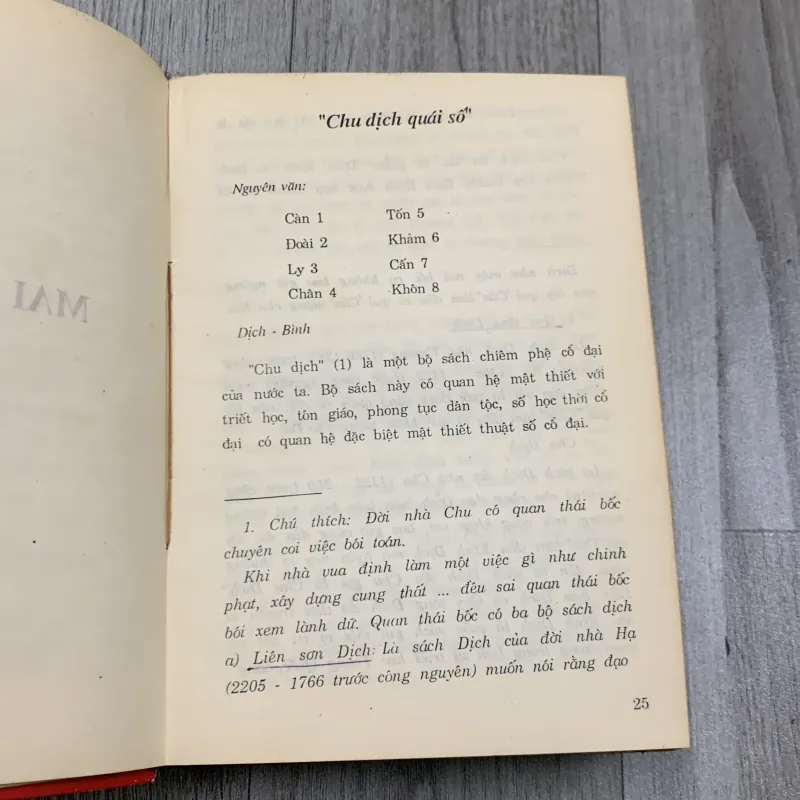 MAI
"Chu dịch quái số"
Nguyên văn:
Càn 1 Tốn 5
Đoài 2 Khảm 6
Ly 3 Cấn 7
Chân 4 Khôn 8
Dịch - Bình
"Chu dịch" (1) là một bộ sách chiêm phệ cổ đại
của nước ta. Bộ sách này có quan hệ mật thiết với
triết học, tôn giáo, phong tục dân tộc, số học thời cổ
đại có quan hệ đặc biệt mật thiết thuật số cổ đại.
1. Chú thích: Đời nhà Chu có quan thái bốc
chuyên coi việc bói toán.
Khi nhà vua định làm một việc gì như chinh
phạt, xây dựng cung thất ... đều sai quan thái bốc
bói xem lành dữ. Quan thái bốc có ba bộ sách dịch
a) Liên sơn Dịch: Là sách Dịch của đời nhà Hạ
(2205 - 1766 trước công nguyên) muốn nói rằng đạo
25